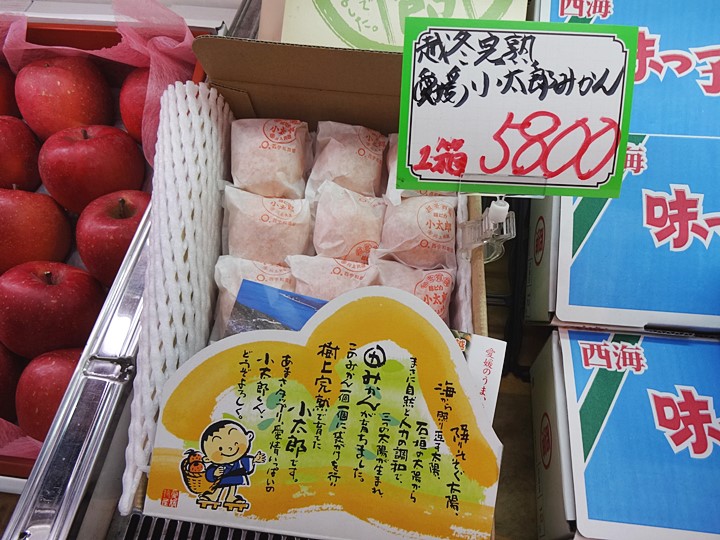 越冬完熟
愛媛 小太郎みかん
1箱 5800
西海
味っ子
西海
味っ
西海
味っ
小太郎
小太郎
愛媛のうま、
降りそそぐ太陽、
海から照り返す太陽、
石垣の太陽から
三つの太陽が生まれ、
まさに自然と人々の調和で、
田みかんが育ちました。
このみかん一個一個に袋がけを行
樹上完熟で育てた
小太郎です。
あまさタップリ愛情いっぱいの
小太郎くん。
どうぞよろしく。